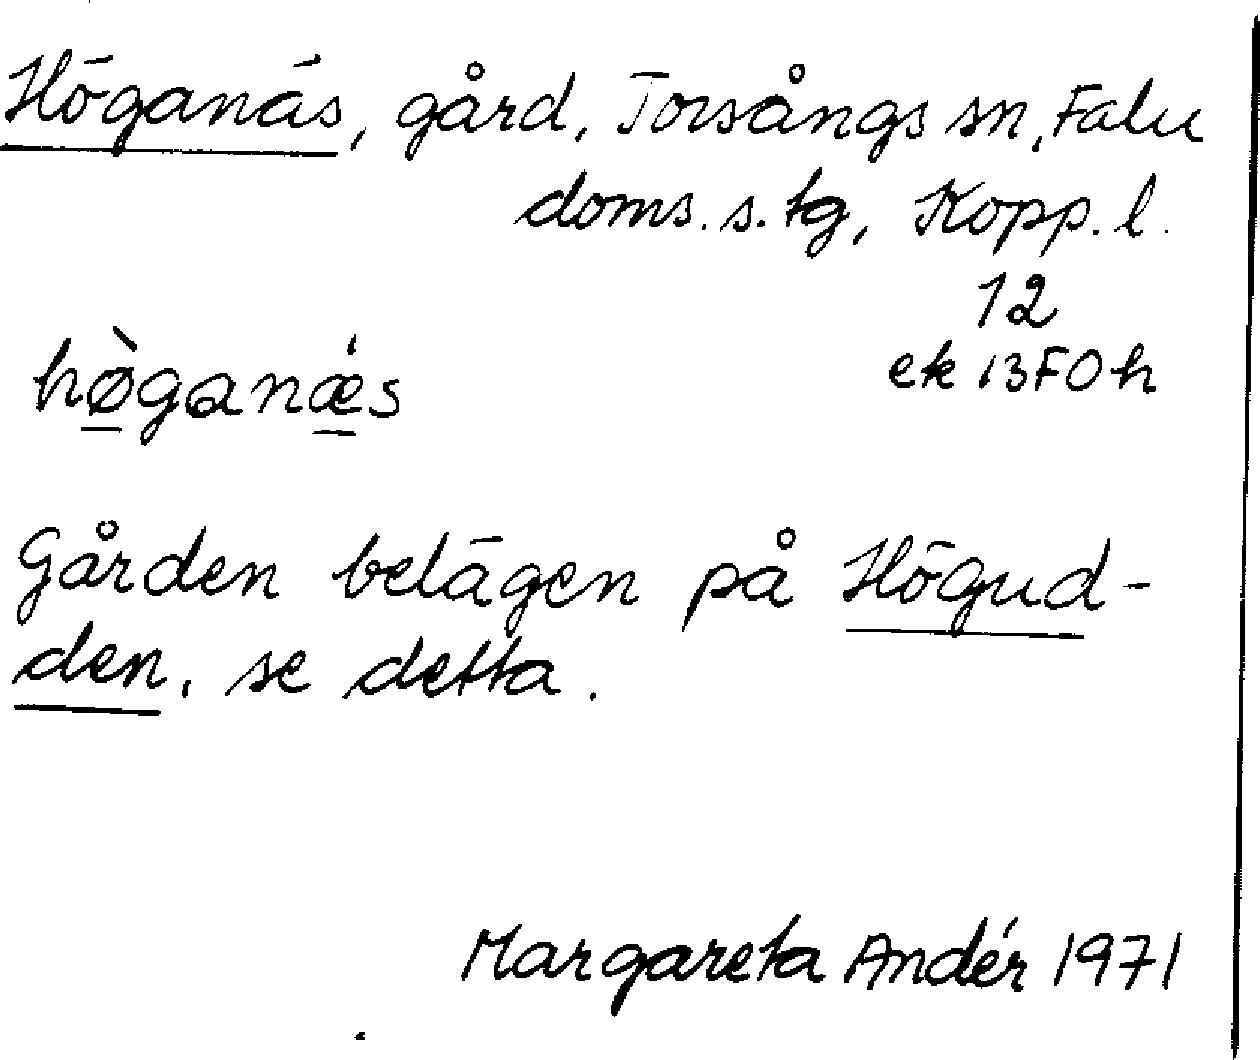 Höganäs, gård, Torsångs sn, Falu
doms. s. tg, Kopp. l.
12
ek 13F0h
hø̀ganǽs
Gården belägen på Högud-
den, se detta.
Margareta Andér 1971